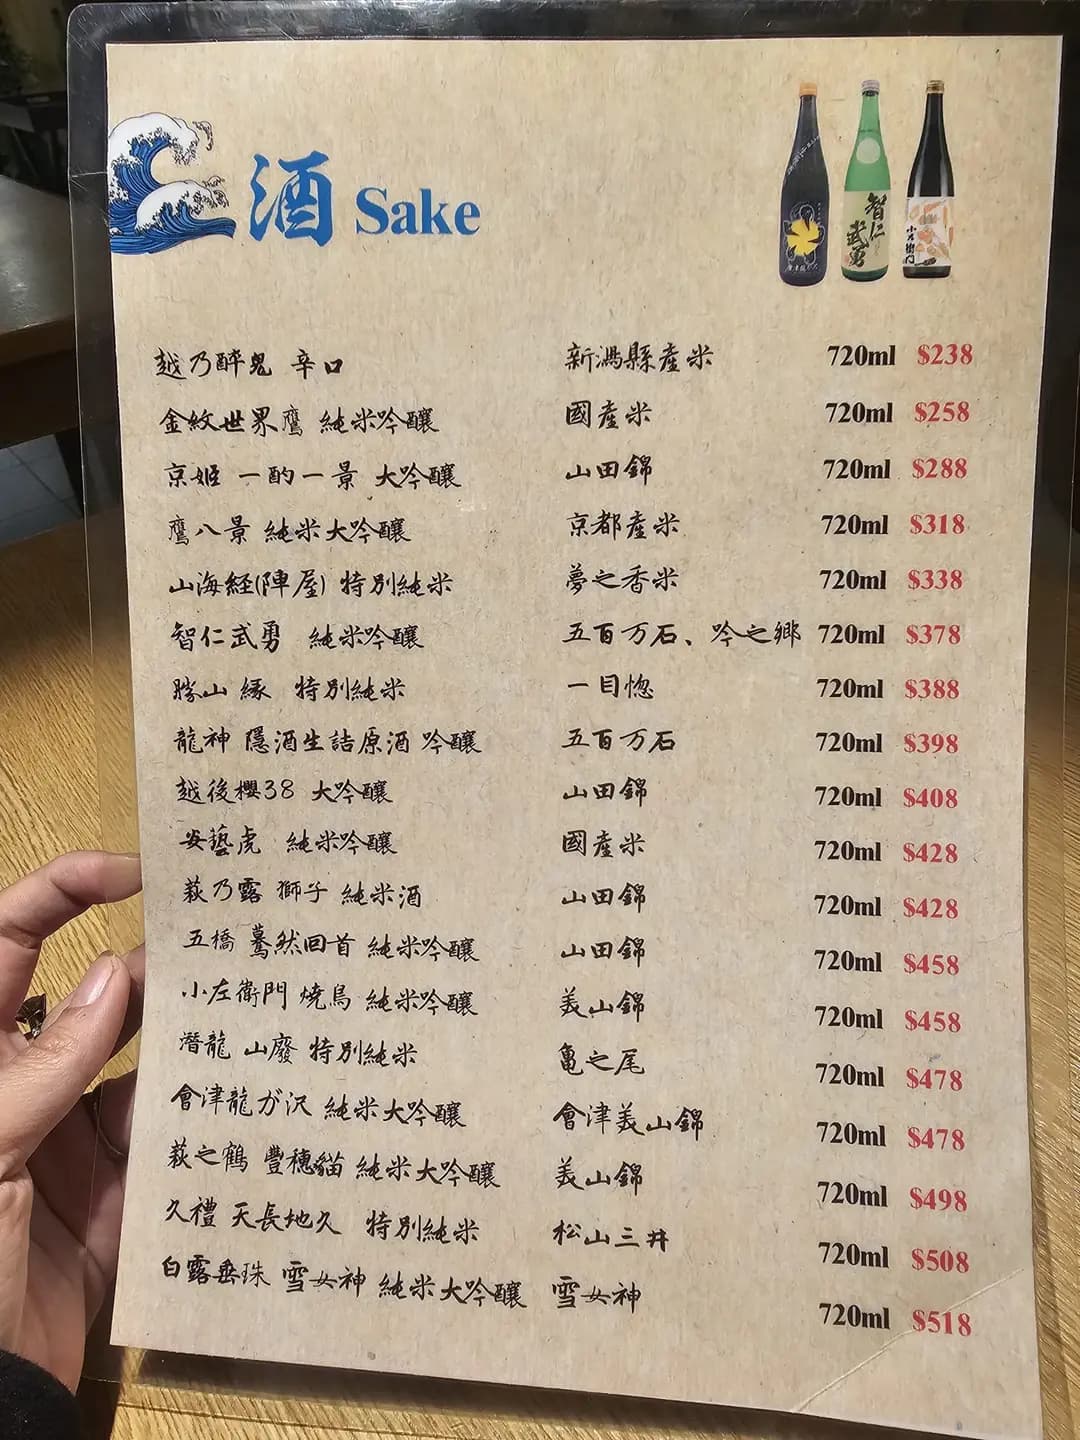 酒 Sake
智仁武勇
小左衛門
越乃醉鬼 辛口 新潟縣產米 720ml $238
金紋世界鷹 純米吟釀 國產米 720ml $258
京姬 一酌一景 大吟釀 山田錦 720ml $288
鷹八景 純米大吟釀 京都產米 720ml $318
山海経(陣屋) 特別純米 夢之香米 720ml $338
智仁武勇 純米吟釀 五百万石、吟之鄉 720ml $378
勝山 縁 特別純米 一目惚 720ml $388
龍神 隱酒生詰原酒 吟釀 五百万石 720ml $398
越後櫻38 大吟釀 山田錦 720ml $408
安藝虎 純米吟釀 國產米 720ml $428
萩乃露 獅子 純米酒 山田錦 720ml $428
五橋 驀然回首 純米吟釀 山田錦 720ml $458
小左衛門 燒鳥 純米吟釀 美山錦 720ml $458
潛龍 山廢 特別純米 亀之尾 720ml $478
會津龍が沢 純米大吟釀 會津美山錦 720ml $478
萩之鶴 豐穗貓 純米大吟釀 美山錦 720ml $498
久禮 天長地久 特別純米 松山三井 720ml $508
白露垂珠 雪女神 純米大吟釀 雪女神 720ml $518